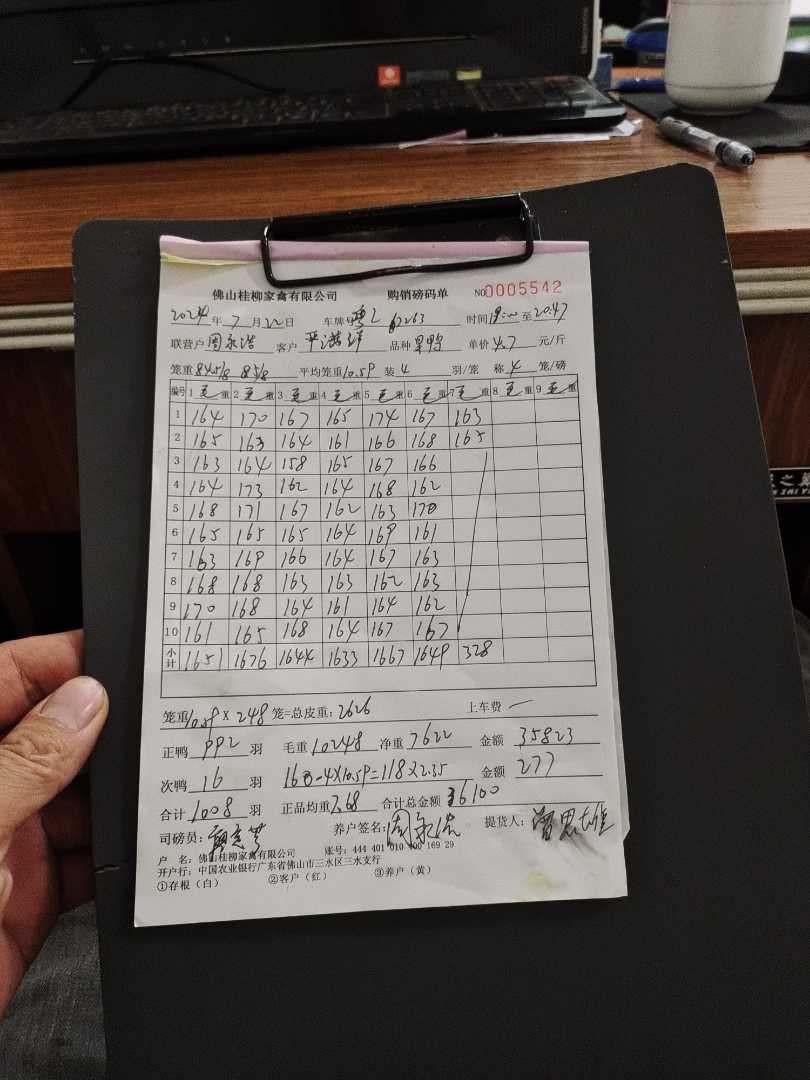 佛山桂柳家禽有限公司 购销磅码单 NO 0005542
2024年 7月 22日 车牌号 粤L 时间 至 20.47
联营户 周永浩 客户 品种 单价 4.7 元/斤
笼重 845/8 85/8 平均笼重 10.59 装 4 羽/笼 称 4 笼/磅
编号 1 毛重 2 毛重 3 毛重 4 毛重 5 毛重 6 毛重 7 毛重 8 毛重 9 毛重
1 164 170 167 165 174 167 163
2 165 163 164 161 166 168 165
3 163 164 158 165 167 166
4 164 173 162 164 168 162
5 168 171 167 162 163 170
6 165 165 165 164 169 161
7 163 169 166 164 167 163
8 168 168 163 163 162 163
9 170 168 164 161 164 162
10 161 165 168 164 167 167
小计 1651 1676 1644 1633 1667 1649 328
笼重 10.59 × 248 笼=总皮重: 2626 上车费 一
正鸭 992 羽 毛重 10248 净重 7622 金额 35823
次鸭 16 羽 163-4×10.59=118×2.35 金额 277
合计 1008 羽 正品均重 7.68 合计总金额 36100
司磅员: 养户签名: 周永浩 提货人:
户 名: 佛山桂柳家禽有限公司 账号: 444 401 010 400 169 29
开户行: 中国农业银行广东省佛山市三水区三水支行
①存根(白) ②客户(红) ③养户(黄)